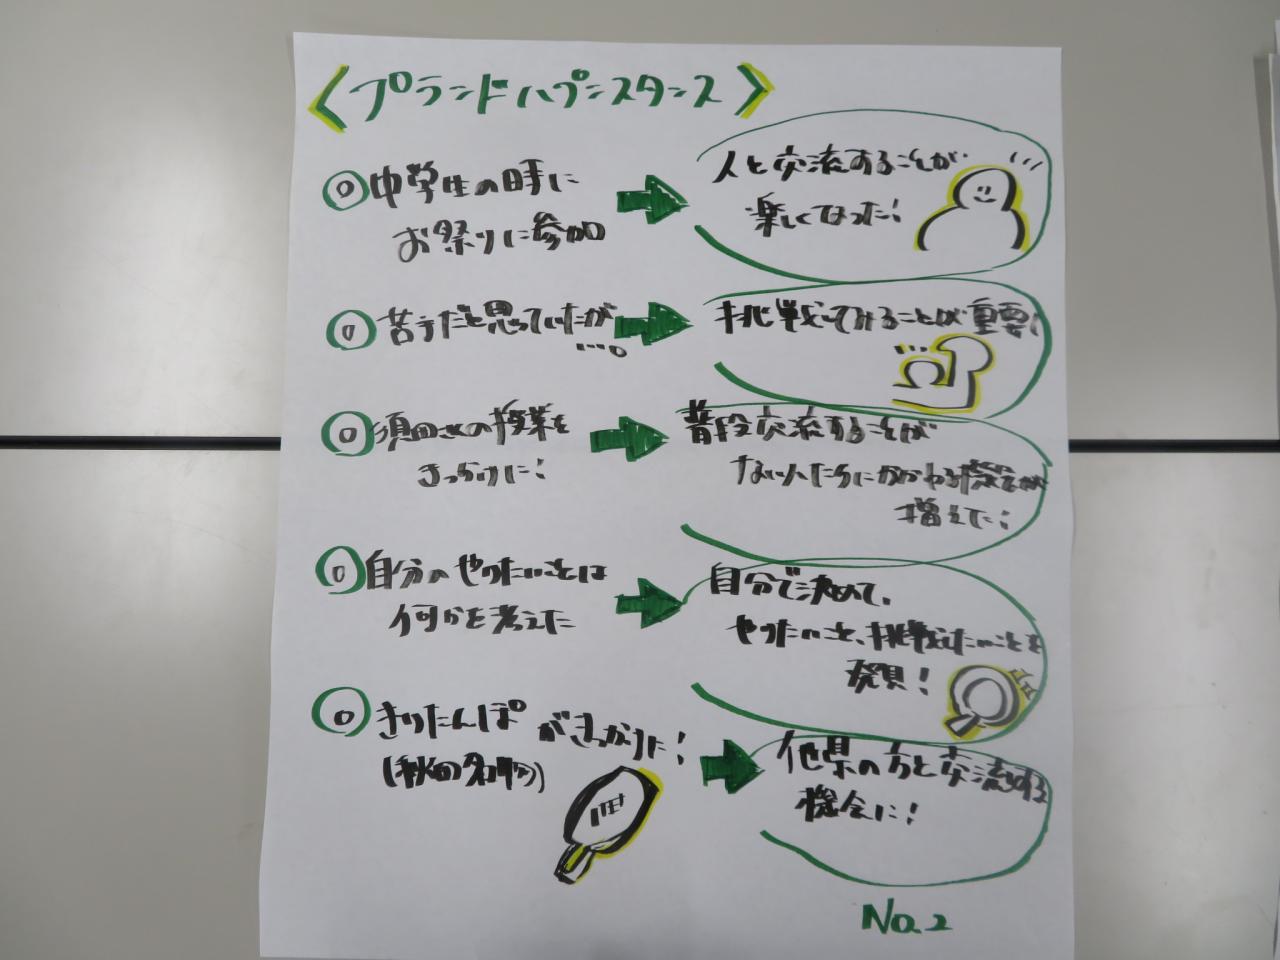 〈プランドハプンスタンス〉
中学生の時に
お祭りに参加
人と交流することが
楽しくなった!
苦手だと思っていたが
...。
挑戦してみることが重要!
須田さんの授業を
きっかけに!
普段交流することが
ない人たちにかかわる機会が
増えた!
自分のやりたいことは
何かを考えた
自分で決めて、
やりたいこと、挑戦したいことを
発見!
きりたんぽがきっかけに!
(秋田名物)
他県の方と交流する
機会に!
No.2